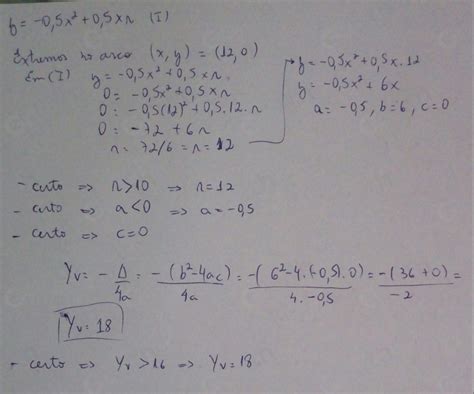 f = -0,5x² + 0,5xr (I)
Extremos no arco (x, y) = (12, 0)
Em (I) y = -0,5x² + 0,5xr.
0 = -0,5x² + 0,5xr
0 = -0,5(12)² + 0,5.12.r
0 = -72 + 6r
r = 72/6 = r = 12
f = -0,5x² + 0,5x.12
y = -0,5x² + 6x
a = -0,5, b = 6, c = 0
- certo ⇒ r > 10 ⇒ r = 12
- certo ⇒ a < 0 ⇒ a = -0,5
- certo ⇒ c = 0
Yv = -Δ/4a = -(b²-4ac)/4a = -(6²-4.(-0,5).0)/4.-0,5 = -(36+0)/-2 =
Yv = 18
- certo ⇒ Yv > 16 ⇒ Yv = 18